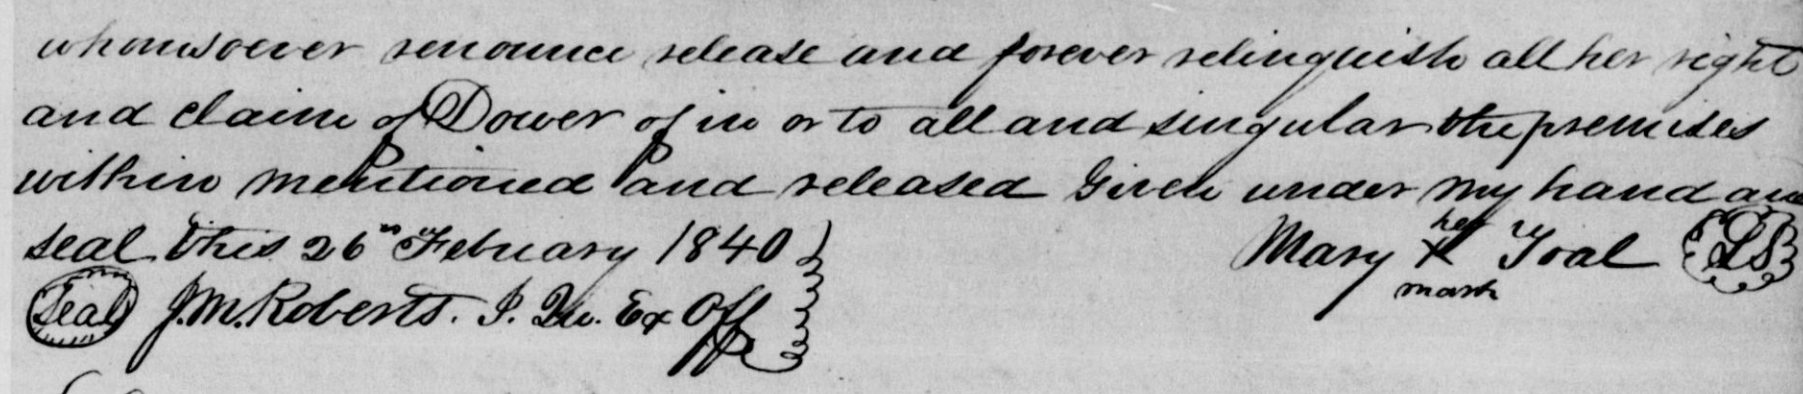 whomsoever renounce release and forever relinquish all her right
and claim of Dower of in or to all and singular the premises
within mentioned and released Given under my hand and
seal this 26th February 1840 Mary her X mark Toal LS
Seal J.M. Roberts. J. Qu. Ex Off